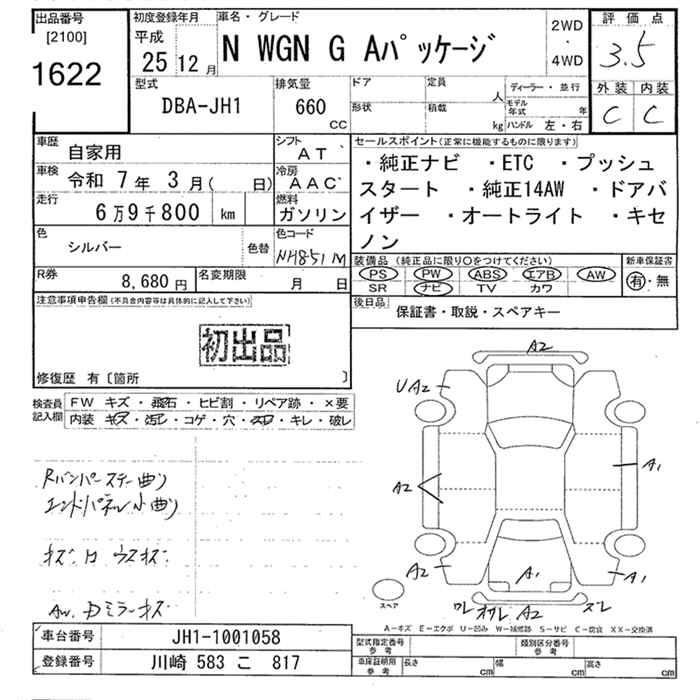 出品番号
[2100]
1622
初度登録年月
平成
25 12月
車名・グレード
N WGN G Aパッケージ
2WD
・
4WD
評価点
3.5
外装 内装
C C
型式
DBA-JH1
排気量
660
CC
ドア
定員
人
形状
積載
kg
ディーラー・並行
モデル年式 年
ハンドル 左・右
車歴
自家用
シフト
AT
車検
令和 7年 3月( 日)
冷房
AAC
走行
6万9千800 km
燃料
ガソリン
色
シルバー
色替
色コード
NH851M
R券
8,680円
名変期限
月 日
セールスポイント(正常に機能するものに限ります)
・純正ナビ ・ETC ・プッシュ
スタート ・純正14AW ・ドアバ
イザー ・オートライト ・キセ
ノン
装備品 (純正品に限り○をつけてください)
PS PW ABS エアB AW
SR ナビ TV カワ
新車保証書
有・無
後日品
保証書・取説・スペアキー
注意事項申告欄(不具合内容等は具体的に記入して下さい)
初出品
修復歴 有〔箇所 〕
検査員
記入欄
FW キズ・飛石・ヒビ割・リペア跡・×要
内装 キズ・汚レ・コゲ・穴・スレ・キレ・破レ
Rバンパーステー曲り
エンドパネル小曲り
キズ ウスキズ
AW. Dミラーキズ
A2
UA2
A2
A1
A2
A1
A1
スペア
ワレ オサレ A2 ズレ
A-キズ E-エクボ U-凹み W-補修跡 S-サビ C-腐食 XX-交換済
車台番号
JH1-1001058
登録番号
川崎 583 こ 817
型式指定番号
参考
類別区分番号
参考
車庫証明用
参考
長さ cm
幅 cm
高さ cm